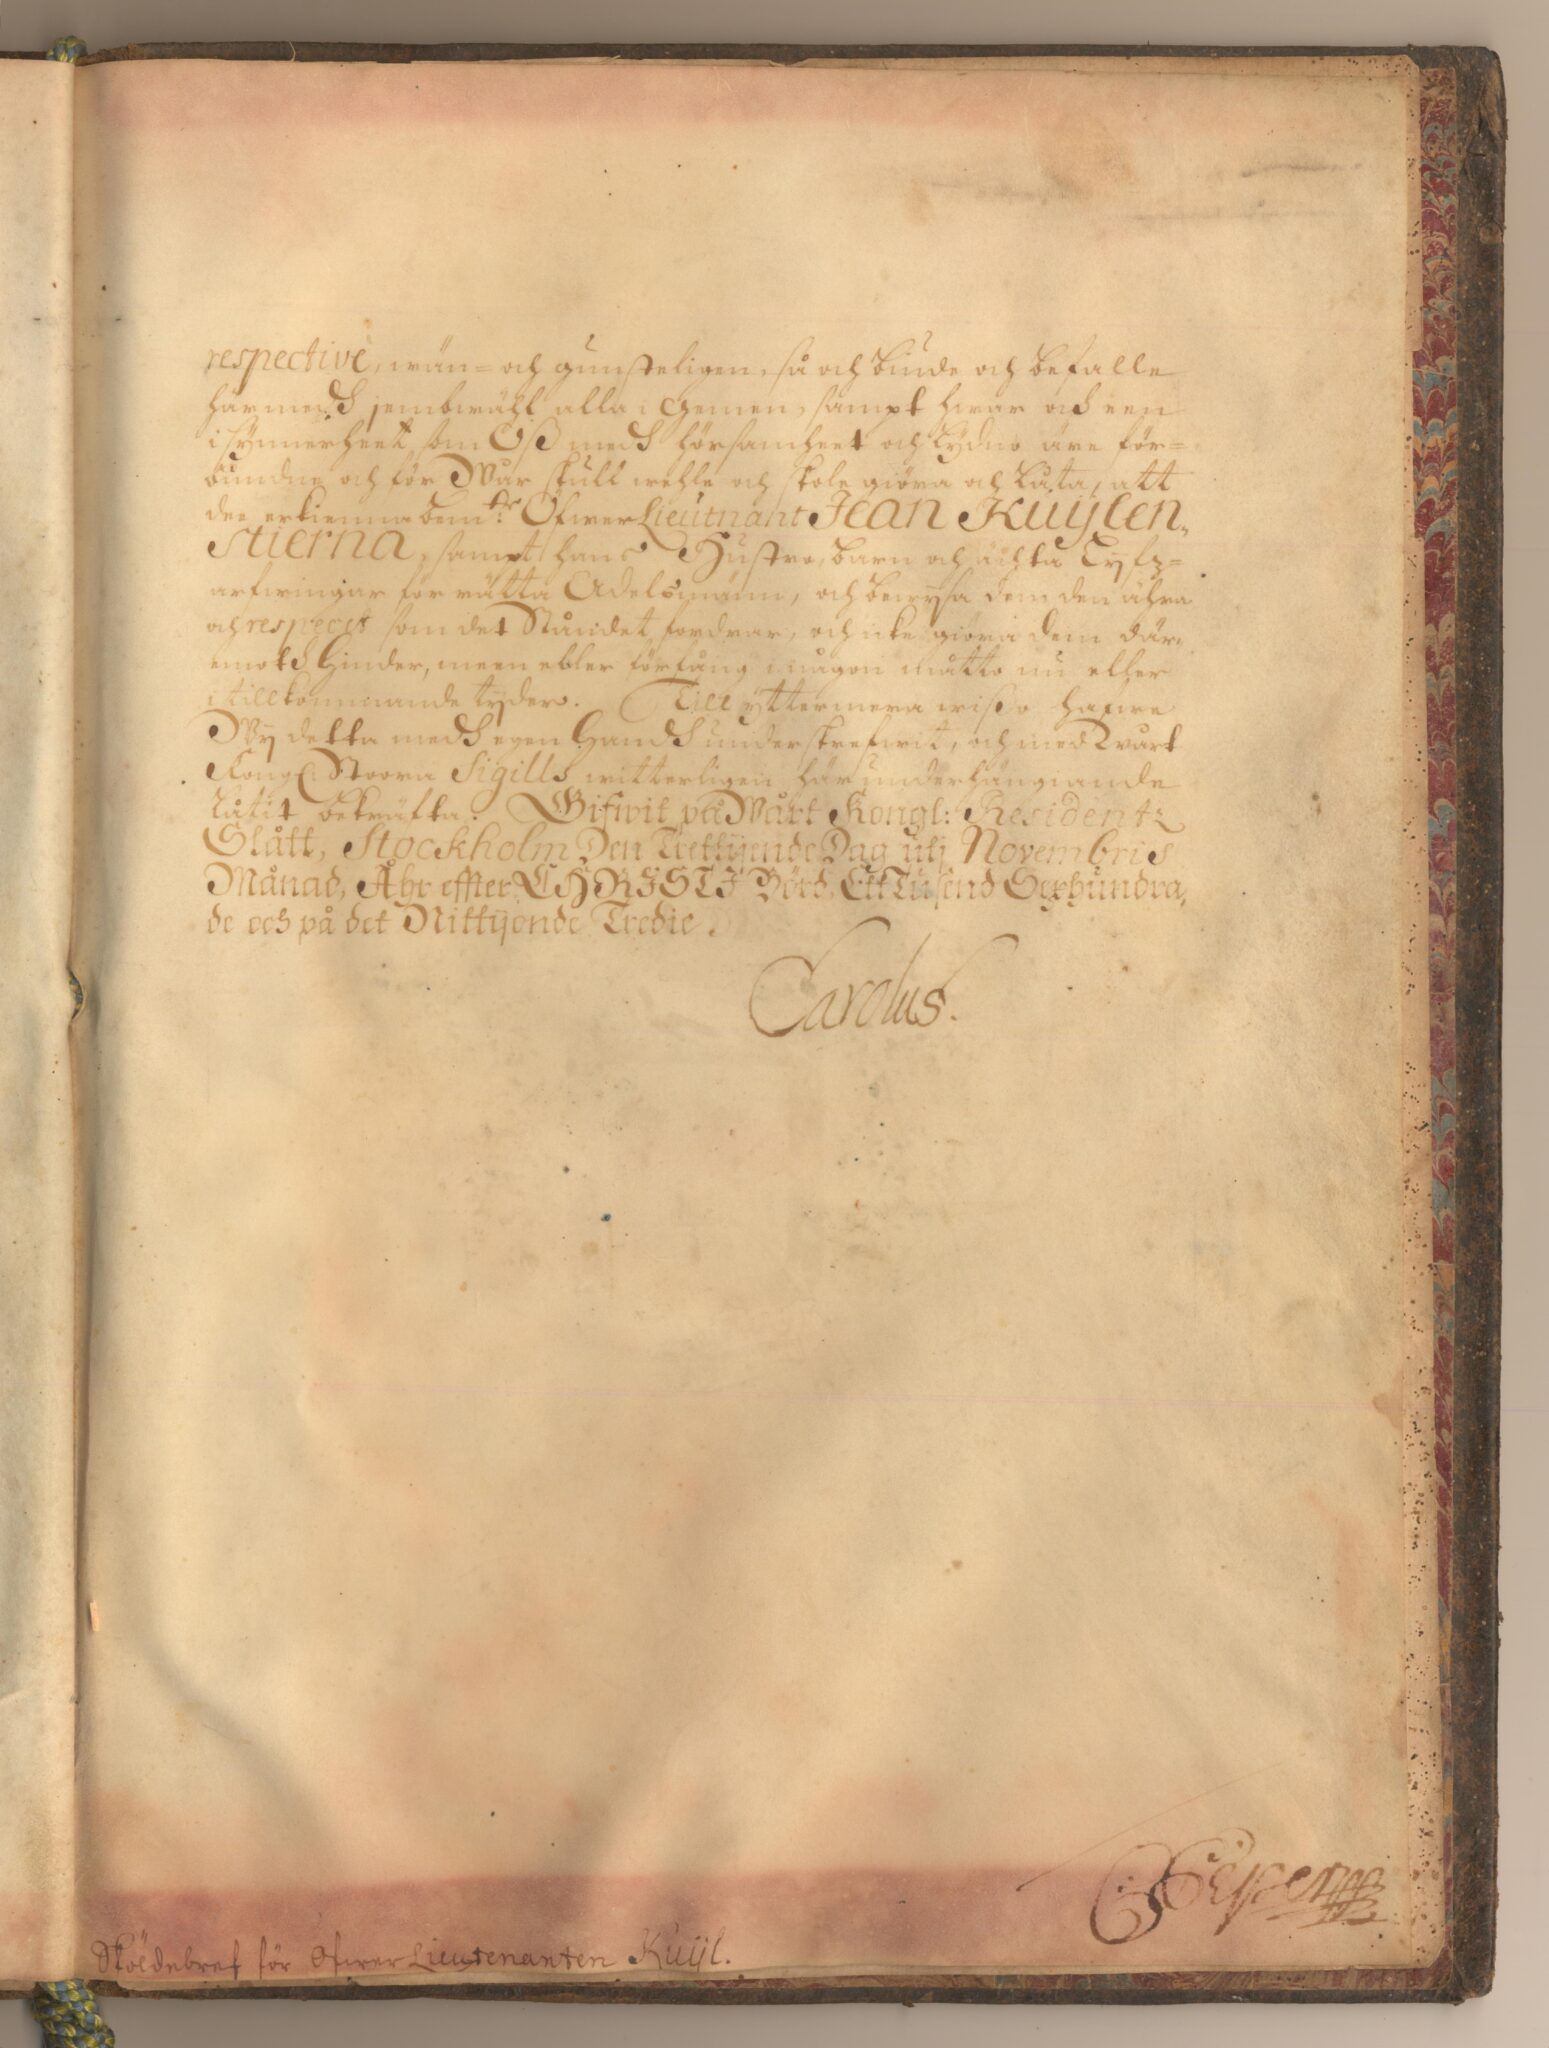 respectivè, wän= och gunsteligen, så och biude och befalle
härmedh jembwähl alla i gemen, sampt hwar och een
i synnerheet som Oß medh hörsamheet och lydno äre för=
bundne och för Wår skull wehle och skole giöra och låta, att
dee erkienna bem:te Öfwer Lieutnant Jean Küijlen,
stierna, sampt hans Hustro, barn och ächta Lyfz=
arfwingar för rätta Adelsmänn, och bewysa dem den ähra
och respect som det Ståndet fordrar, och icke giöra dem där,
emoth Hinder, meen eller förfång i någon måtto nu eller
i tillkommande tyder. Till yttermera wißo hafwe
Wij detta medh egen Handh underskrefwit, och med wårt
Kongl. Stoora Sigills witterligen här underhängiande
låtit bekräfta. Gifwit på Wårt Kongl: Residentz
Slått, Stockholm Den Trettijende Dag utj Novembris
Månad, Åhr effter CHRISTJ Börd, Ett Tusend Sexhundra,
de och på det Nittijonde Tredie.
Carolus.
Sköldebref för Öfwer Lieutenanten Kuijl.